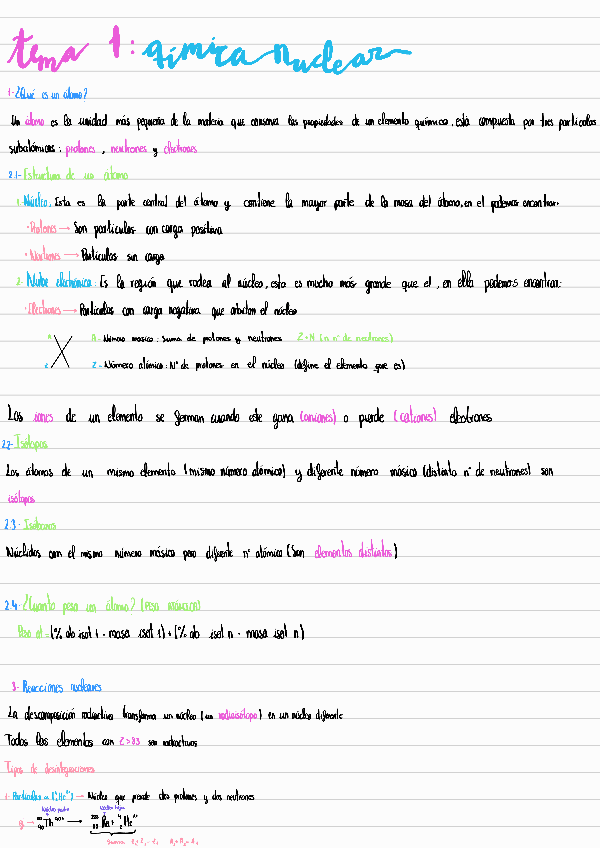 tema 1: química nuclear
1-¿Qué es un átomo?
Un átomo es la unidad más pequeña de la materia que conserva las propiedades de un elemento químico, está compuesta por tres partículas
subatómicas: protones, neutrones y electrones
2.1- Estructura de un átomo
1- Núcleo. Esta es la parte central del átomo y contiene la mayor parte de la masa del átomo, en el podemos encontrar:
· Protones → Son partículas con carga positiva
· Neutrones → Partículas sin carga
2- Nube electrónica: Es la región que rodea al núcleo, esta es mucho más grande que el, en ella podemos encontrar:
· Electrones → Partículas con carga negativa que orbitan el núcleo
A A- Número másico: Suma de protones y neutrones Z+N (n nº de neutrones)
X
Z Z- Número atómico: Nº de protones en el núcleo (define el elemento que es)
Los iones de un elemento se forman cuando este gana (aniones) o pierde (cationes) electrones
2.2- Isótopos
Los átomos de un mismo elemento (mismo número atómico) y diferente número másico (distinto nº de neutrones) son
isótopos
2.3- Isóbaros
Núclidos con el mismo número másico pero diferente nº atómico (Son elementos distintos)
2.4- ¿Cuánto pesa un átomo? (PESO ATÓMICO)
Peso at = (% ab isot 1 · masa isot 1) + (% ab isot n · masa isot n)
3- Reacciones nucleares
La descomposición radiactiva transforma un núcleo (un radioisótopo) en un núcleo diferente
Todos los elementos con Z>83 son radiactivos
Tipos de desintegraciones
1- Partículas α (⁴₂He²⁺) → Núcleo que pierde dos protones y dos neutrones
Núcleo padre Núcleo hijo